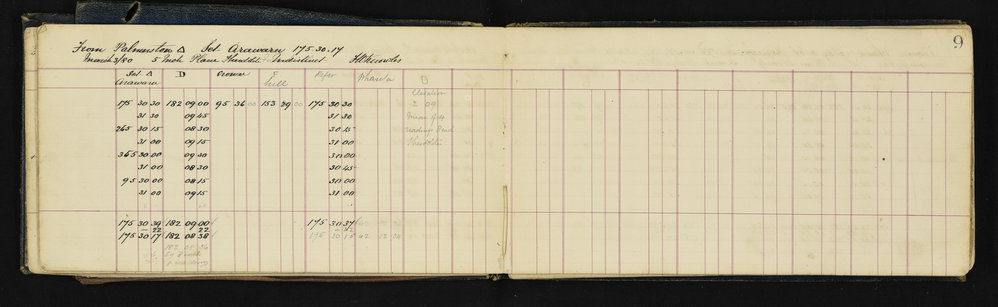 9
From Palmerston △ Set Arawaru 175·30·17
March 3/80 5 Inch Plane Theodlt. Indistinct
Set △ D Crown F Refer Wharite B
Arawaru hill
Elevation
175 30 30 182 09 00 95 36 00 153 29 00 175 30 30 2 09
31 30 09 45 31 30 Mean of 4
265 30 15 08 30 30 15 readings
31 00 09 15 31 00
355 30 00 09 30 30 00
31 00 08 30 30 45
95 30 00 08 15 30 00
31 00 09 15 31 00
175 30 39 182 09 00 175 30 37
22 22
175 30 17 182 08 38 175 30 15
182 08 36